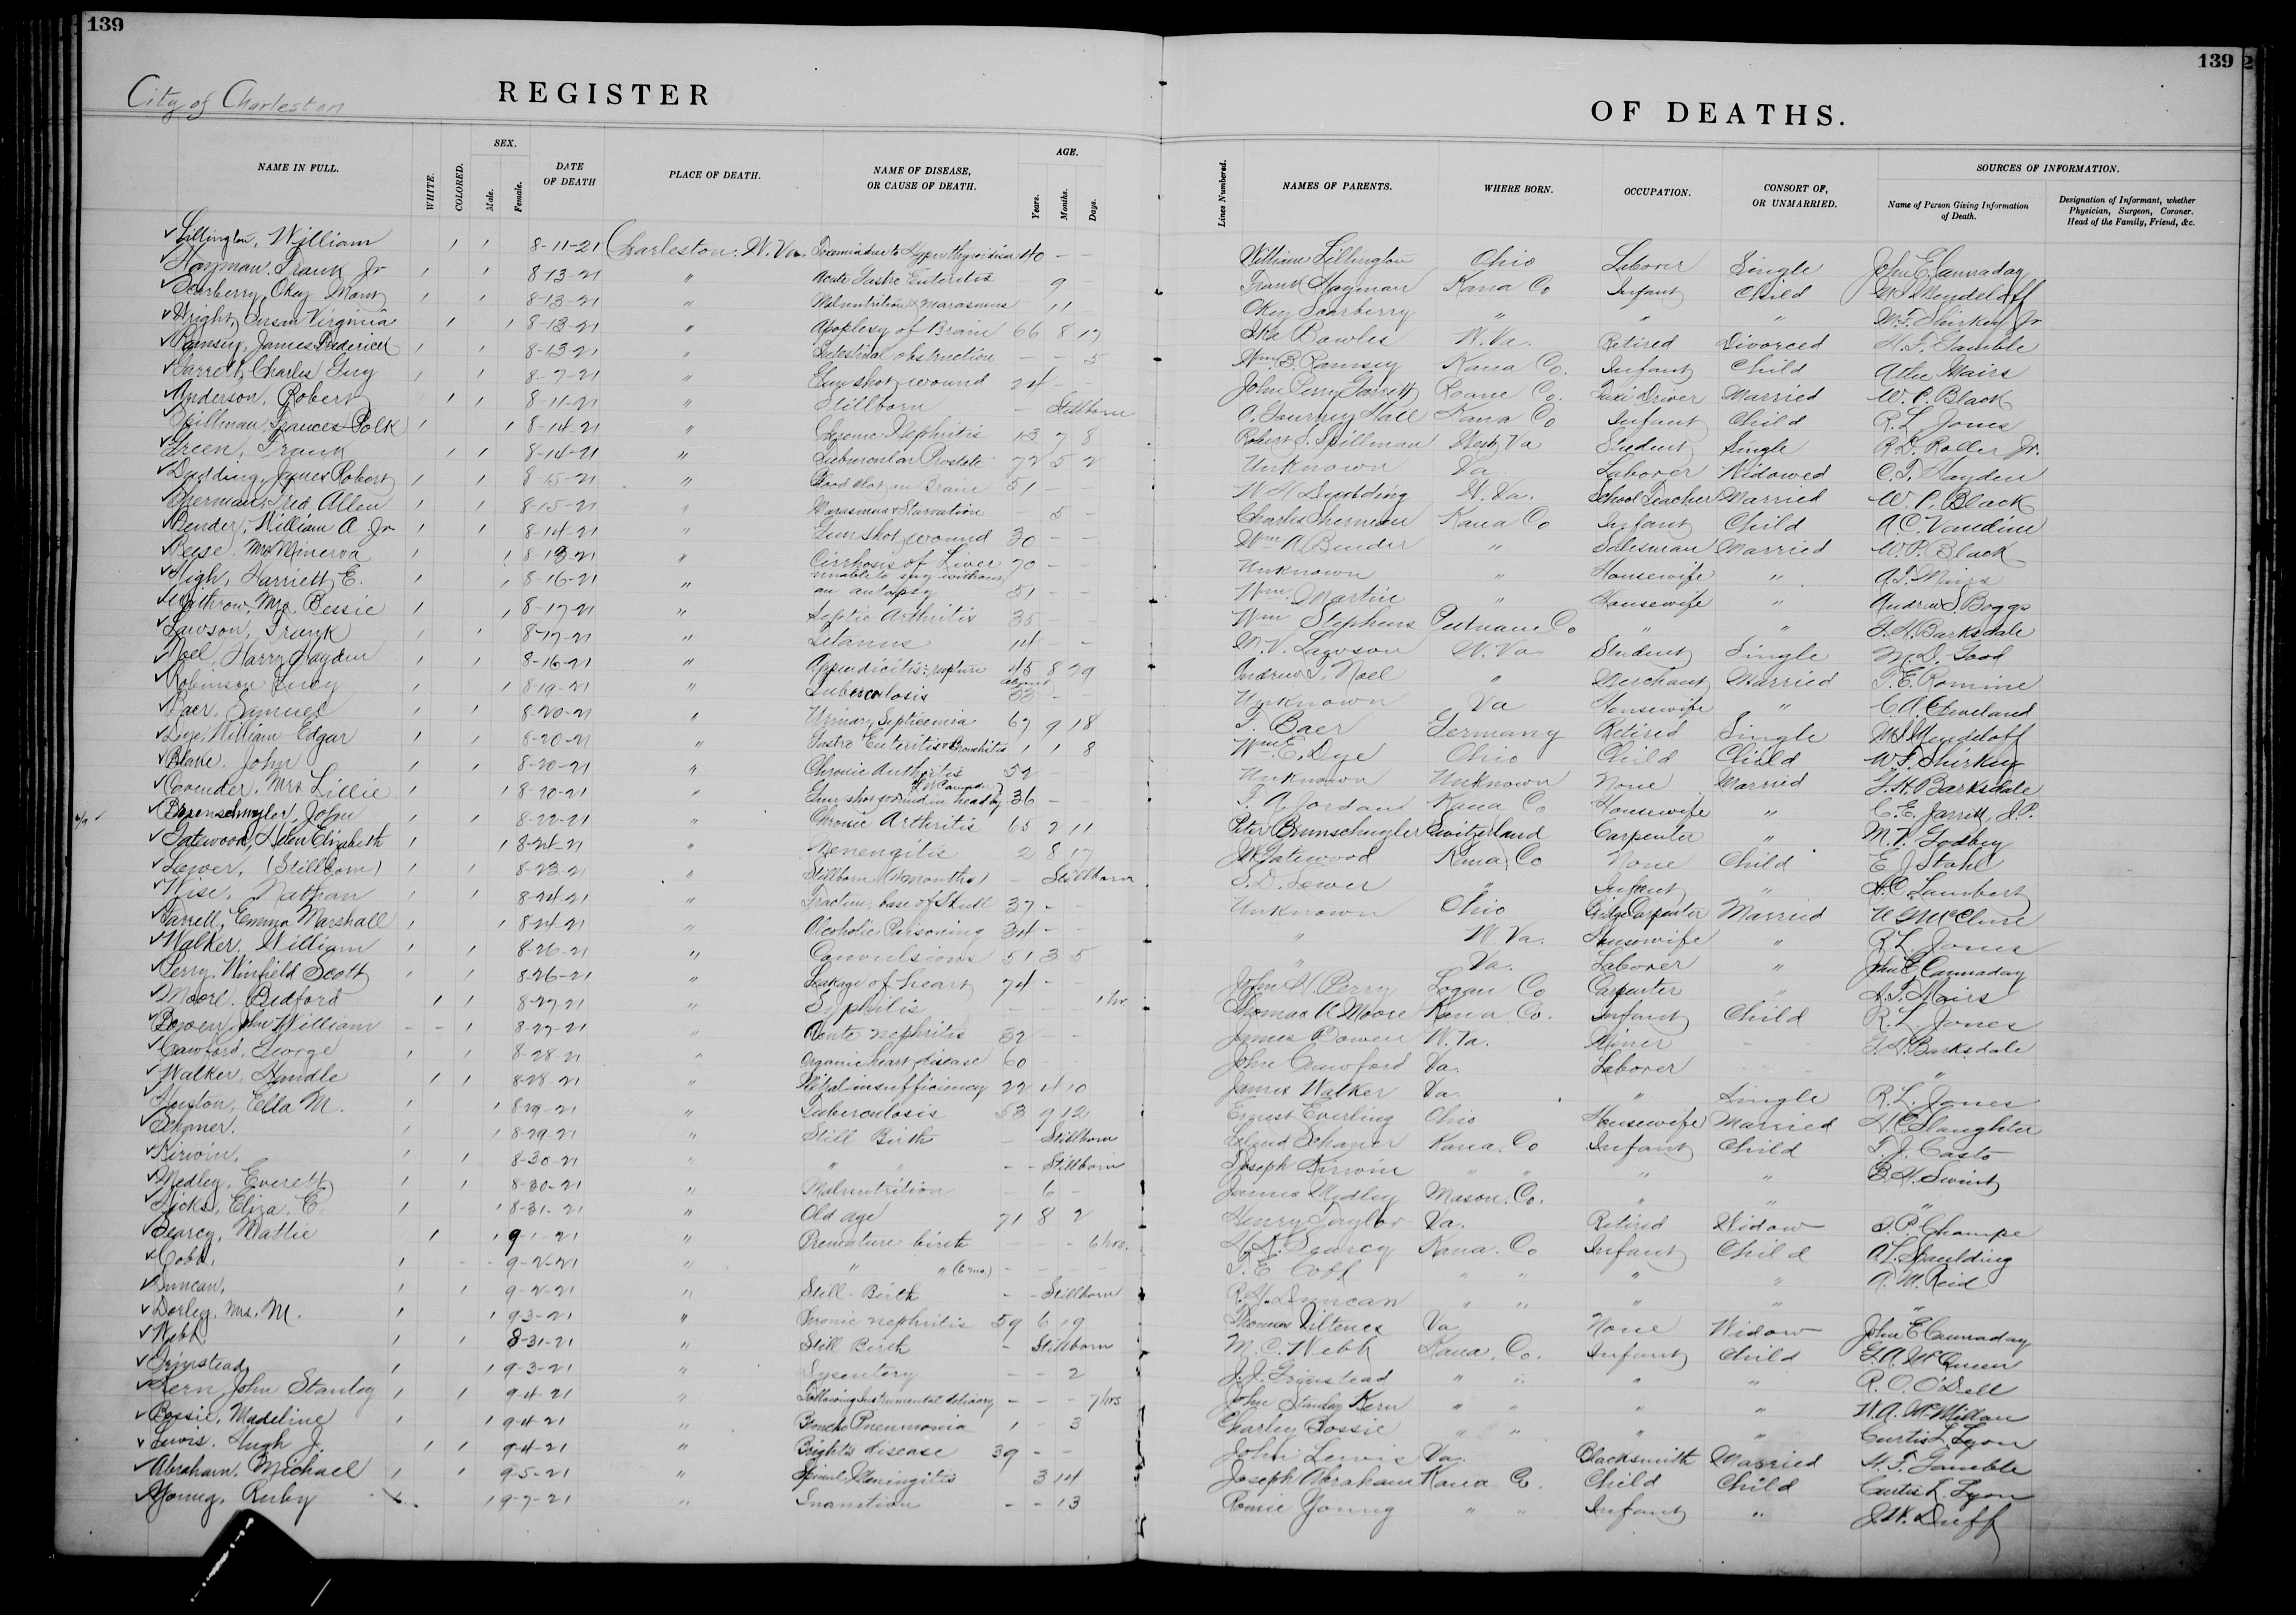 139
139
City of Charleston
REGISTER OF DEATHS.
NAME IN FULL. WHITE. COLORED. SEX. Male. Female. DATE OF DEATH PLACE OF DEATH. NAME OF DISEASE, OR CAUSE OF DEATH. AGE. Years. Months. Days. Lines Numbered. NAMES OF PARENTS. WHERE BORN. OCCUPATION. CONSORT OF, OR UNMARRIED. SOURCES OF INFORMATION. Name of Person Giving Information of Death. Designation of Informant, whether Physician, Surgeon, Coroner. Head of the Family, Friend, &c.
Lillington, William 8-11-21 Charleston, W. Va. due to 40 - - William Lillington Ohio Laborer Single John E. Cannaday
Hayman, Frank Jr 8-13-21 " Acute Gastro Enteritis - 9 - Frank Hayman Kana Co Infant Child M. S. Mendeloff
Scarberry, Okey 8-13-21 " Malnutrition & Marasmus 11 Okey Scarberry " " " W. F. Shirkey Jr
Wright, Susan Virginia 8-13-21 " Apoplexy of Brain 66 8 17 Ike Bowles W. Va. Retired Divorced H. F. Gamble
Ramsey, James Frederick 8-13-21 " Intestinal obstruction - - 5 Wm. B. Ramsey Kana Co. Infant Child Mairs
Garrett, Charles Guy 8-7-21 " Gun shot wound 24 - - John Garrett Roane Co. Taxi Driver Married W. P. Black
Anderson, Robert 8-11-21 " Stillborn - Stillborn Hall Kana Co Infant Child R. L. Jones
Spillman, Frances Polk 8-14-21 " Chronic Nephritis 13 7 8 Robert S. Spillman West Va Student Single R. D. Roller Jr.
Green, Frank 8-14-21 " Tubercular Prostate 72 5 2 Unknown Va Laborer Widowed C. T. Hayden
Dudding, James Robert 8-15-21 " Blood clot on Brain 51 - - W H Dudding W. Va. School Teacher Married W. P. Black
Sherman, Fred Allen 8-15-21 " Marasmus & Starvation - 5 - Charles Sherman Kana Co Infant Child A. C.
Bender, William A. Jr 8-14-21 " Gun shot wound 30 - - Wm A Bender " Salesman Married W. P. Black
Reese, Mrs Minerva 8-13-21 " Cirrhosis of Liver 70 - - Unknown " Housewife " A. T. Mairs
High, Harriett E. 8-16-21 " unable to say without an autopsy 51 - - Wm. Martin " Housewife " Andrew S. Boggs
Withrow, Mrs. Bessie 8-17-21 " Septic Arthritis 35 - - Wm Stephens Putnam Co " " G. H. Barksdale
Lawson, Frank 8-17-21 " Tetanus 14 - - M. V. Lawson W. Va Student Single M. D. Good
Noel, Harry Hayden 8-16-21 " Appendicitis: rupture 45 8 29 Andrew S. Noel " Merchant Married T. E. Romine
Robinson Lucy 8-19-21 Tuberculosis about 33 - Unknown Va Housewife " C. A. Cleveland
Baer, Samuel 8-20-21 Urinary Septicemia 67 9 18 T. Baer Germany Retired Single M. S. Mendeloff
Dye, William Edgar 8-20-21 " Gastro Enteritis & Bronchitis 1 1 8 Wm. E. Dye Ohio Child Child W. F. Shirkey
Blake, John 8-20-21 " Chronic Arthritis 52 - Unknown Unknown None Married G. H. Barksdale
Cavender, Mrs. Lillie 8-20-21 " Gun shot wound in head by 36 - - T. A. Jordan Kana Co Housewife " C. E. Jarrett, J.P.
John 8-22-21 " Chronic Arthritis 65 2 11 Peter Brunschwyler Switzerland Carpenter " M. V. Godbey
Gatewood, Helen Elizabeth 8-24-21 " Menengitis 2 8 17 JW Gatewood Kana Co None Child E J Stahl
Lower, (Stillborn) 8-23-21 " Stillborn (4 months) - Stillborn S. D. Lower " Infant " A. C. Lambert
Wise, Nathan 8-24-21 " Fracture, base of Skull 37 - - Unknown Ohio Bridge Carpenter Married U G McClure
Farrell, Emma Marshall 8-24-21 " Alcoholic Poisoning 34 - - " W. Va. Housewife " R. L. Jones
Walker, William 8-26-21 " Convulsions 51 3 5 " Va. Laborer " John E Cannaday
Perry, Winfield Scott 8-26-21 " Leakage of heart 74 - - John H. Perry Logan Co Carpenter " A. T. Mairs
Moore, Bedford 8-27-21 " Syphilis - - - 1 hr. Thomas A Moore Kana Co. Infant Child R. L. Jones
Bowen, John William 8-27-21 " Acute nephritis 32 - - James Bowen W. Va. Miner - G. H. Barksdale
Crawford, George 8-28-21 " Organic heart disease 60 - John Crawford Va. Laborer - - "
Walker, Handle 8-28-21 " Mitral insufficiency 22 4 10 James Walker Va. " Single R. L. Jones
Huston, Ella M. 8-29-21 " Tuberculosis 53 9 12 Ernest Everling Ohio Housewife Married H. C. Slaughter
Schoner. 8-29-21 " Still Birth - Stillborn Kana. Co Infant Child T. J. Casto
Kirwin, 8-30-21 " " " - - Stillborn Joseph Kirwin " " " " B. H. Swint
Medley, Everett 8-30-21 " Malnutrition - 6 - James Medley Mason. Co. " " "
Hicks, Eliza. E. 8-31-21 " Old age 71 8 2 Henry Taylor Va. Retired Widow I. P. Champe
Searcy, Mattie 9-1-21 " Premature birth - - - 6 hrs. H. N. Searcy Kana. Co Infant Child A. L. Spaulding
Cobb, 9-2-21 " " " (6 mo.) - - - - T. E. Cobb " " " " A. M. Reid
Duncan, 9-2-21 " Still-Birth - - Stillborn R. H. Duncan " " " " "
Dorley, Mrs. M. 9-3-21 " Chronic nephritis 59 6 19 Thomas Va None Widow John E Cannaday
Webb 8-31-21 " Still Birth - Stillborn M. C. Webb Kana. Co. Infant Child G. A. McQueen
Grinstead, 9-3-21 " Dysentery - - 2 J. J. Grinstead " " " " R. O. O'Dell
Kern, John Stanley 9-4-21 " Following Instrumental delivery - - - 7 hrs John Stanley Kern " " " " W. A. McMillan
Bossie, Madeline 9-4-21 " Broncho Pneumonia 1 - 3 Charley Bossie " " " " Curtis L. Lyon
Lewis, Hugh J. 9-4-21 " Bright's disease 39 - - John Lewis Va. Blacksmith Married H. F. Gamble
Abraham, Michael 9-5-21 " Spinal Meningitis 3 14 Joseph Abraham Kana Co. Child Child Curtis L. Lyon
Young, Ruby 9-7-21 " Inanition - - 13 Romie Young " " Infant " J. W. Duff